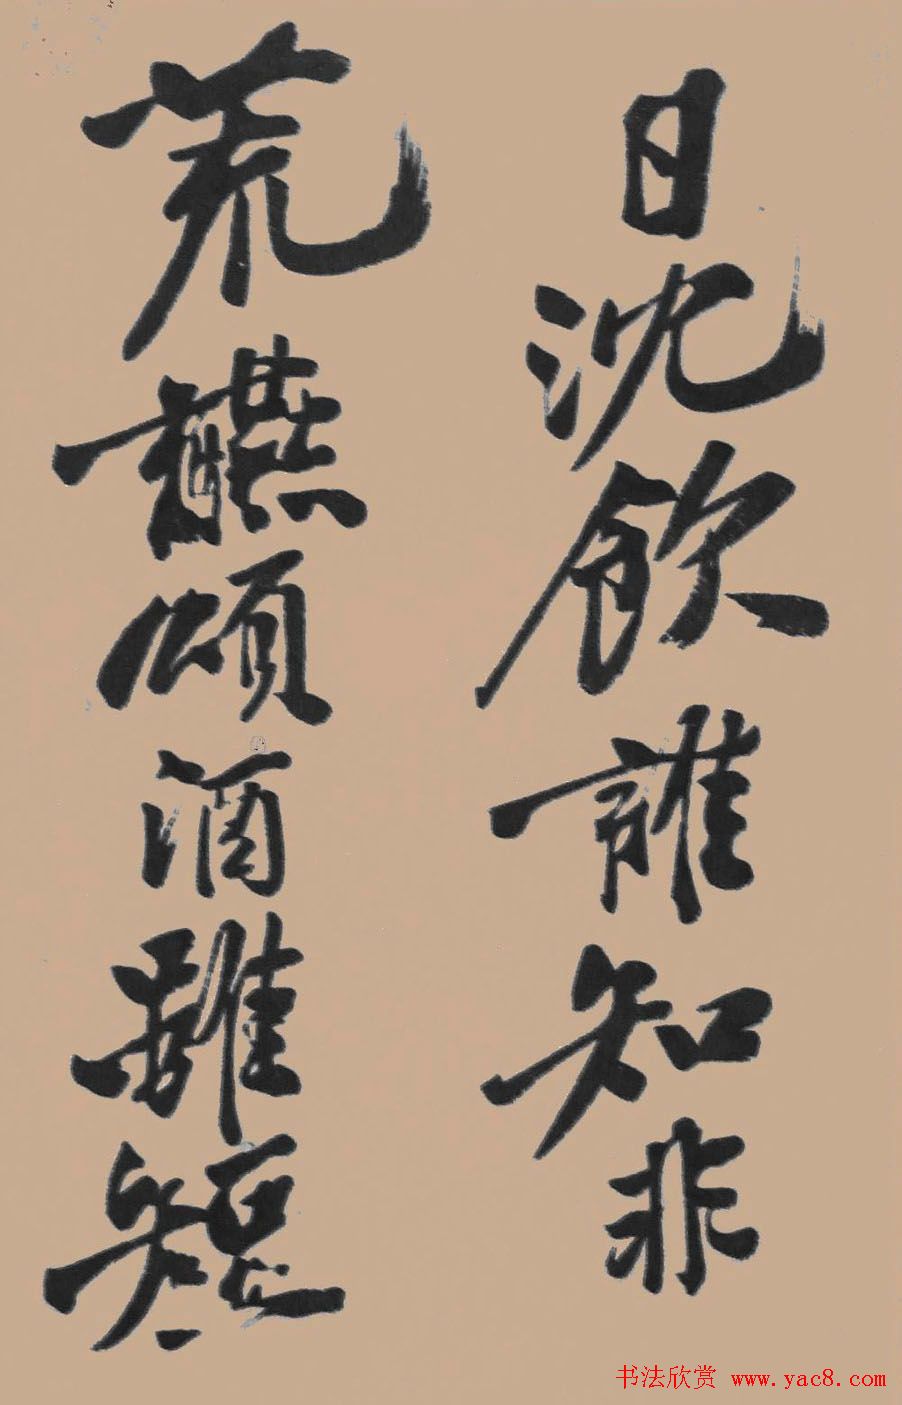 日沈飲誰知非
荒讌頌酒雖短
书法欣赏 www.yac8.com